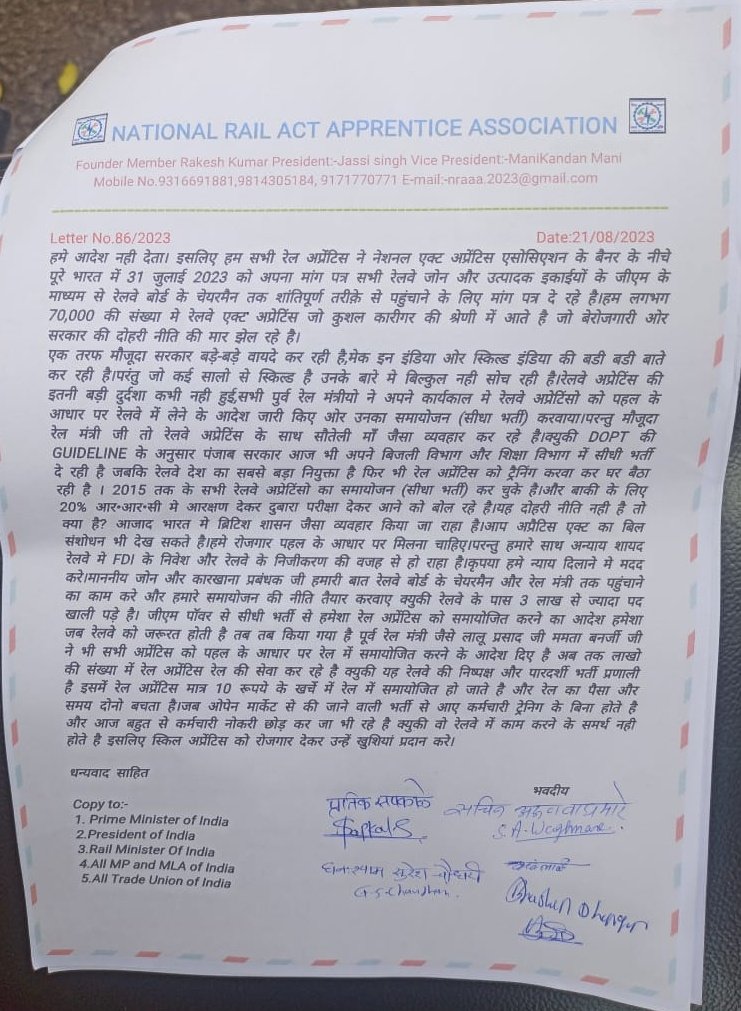 NATIONAL RAIL ACT APPRENTICE ASSOCIATION
Founder Member Rakesh Kumar President:-Jassi singh Vice President:-ManiKandan Mani
Mobile No.9316691881,9814305184, 9171770771 E-mail:-nraaa.2023@gmail.com
Letter No.86/2023 Date:21/08/2023
हमे आदेश नही देता। इसलिए हम सभी रेल अप्रेंटिस ने नेशनल एक्ट अप्रेंटिस एसोसिएशन के बैनर के नीचे
पूरे भारत में 31 जुलाई 2023 को अपना मांग पत्र सभी रेलवे जोन और उत्पादक इकाईयों के जीएम के
माध्यम से रेलवे बोर्ड के चेयरमैन तक शांतिपूर्ण तरीक़े से पहुंचाने के लिए मांग पत्र दे रहे है।हम लगभग
70,000 की संख्या मे रेलवे एक्ट अप्रेटिंस जो कुशल कारीगर की श्रेणी में आते है जो बेरोजगारी ओर
सरकार की दोहरी नीति की मार झेल रहे है।
एक तरफ मौजूदा सरकार बड़े-बड़े वायदे कर रही है,मेक इन इंडिया ओर स्किल्ड इंडिया की बडी बडी बाते
कर रही है।परंतु जो कई सालो से स्किल्ड है उनके बारे मे बिल्कुल नही सोच रही है।रेलवे अप्रेटिंस की
इतनी बड़ी दुर्दशा कभी नही हुई,सभी पुर्व रेल मंत्रीयो ने अपने कार्यकाल मे रेलवे अप्रेटिंसो को पहल के
आधार पर रेलवे में लेने के आदेश जारी किए ओर उनका समायोजन (सीधा भर्ती) करवाया।परन्तु मौजूदा
रेल मंत्री जी तो रेलवे अप्रेटिंस के साथ सौतेली माँ जैसा व्यवहार कर रहे है।क्युकी DOPT की
GUIDELINE के अनुसार पंजाब सरकार आज भी अपने बिजली विभाग और शिक्षा विभाग में सीधी भर्ती
दे रही है जबकि रेलवे देश का सबसे बड़ा नियुक्ता है फिर भी रेल अप्रेटिंस को ट्रैनिंग करवा कर घर बैठा
रही है । 2015 तक के सभी रेलवे अप्रेटिंसो का समायोजन (सीधा भर्ती) कर चुके है।और बाकी के लिए
20% आर॰आर॰सी मे आरक्षण देकर दुबारा परीक्षा देकर आने को बोल रहे है।यह दोहरी नीति नही है तो
क्या है? आजाद भारत मे ब्रिटिश शासन जैसा व्यवहार किया जा राहा है।आप अप्रैटिस एक्ट का बिल
संशोधन भी देख सकते है।हमे रोजगार पहल के आधार पर मिलना चाहिए।परन्तु हमारे साथ अन्याय शायद
रेलवे मे FDI के निवेश और रेलवे के निजीकरण की वजह से हो राहा है।कृपया हमे न्याय दिलाने मे मदद
करे।माननीय जोन और कारखाना प्रबंधक जी हमारी बात रेलवे बोर्ड के चेयरमैन और रेल मंत्री तक पहुंचाने
का काम करे और हमारे समायोजन की नीति तैयार करवाए क्युकी रेलवे के पास 3 लाख से ज्यादा पद
खाली पड़े है। जीएम पॉवर से सीधी भर्ती से हमेशा रेल अप्रेंटिस को समायोजित करने का आदेश हमेशा
जब रेलवे को जरूरत होती है तब तब किया गया है पूर्व रेल मंत्री जैसे लालू प्रसाद जी ममता बनर्जी जी
ने भी सभी अप्रेंटिस को पहल के आधार पर रेल में समायोजित करने के आदेश दिए है अब तक लाखो
की संख्या में रेल अप्रेंटिस रेल की सेवा कर रहे है क्युकी यह रेलवे की निष्पक्ष और पारदर्शी भर्ती प्रणाली
है इसमें रेल अप्रेंटिस मात्र 10 रूपये के खर्चे में रेल में समायोजित हो जाते है और रेल का पैसा और
समय दोनो बचता है।जब ओपेन मार्केट से की जाने वाली भर्ती से आए कर्मचारी ट्रेनिग के बिना होते है
और आज बहुत से कर्मचारी नोकरी छोड़ कर जा भी रहे है क्युकी वो रेलवे में काम करने के समर्थ नही
होते है इसलिए स्किल अप्रेंटिस को रोजगार देकर उन्हें खुशियां प्रदान करे।
धन्यवाद साहित
भवदीय
Copy to:-
1. Prime Minister of India
2.President of India
3.Rail Minister Of India
4.All MP and MLA of India
5.All Trade Union of India
प्रतिक सपकाळे
सचिन
S.A-Waghmare.
घनःश्याम सुरेश चौधरी
G.S.Chaudhari.
Bhushan Dhangar